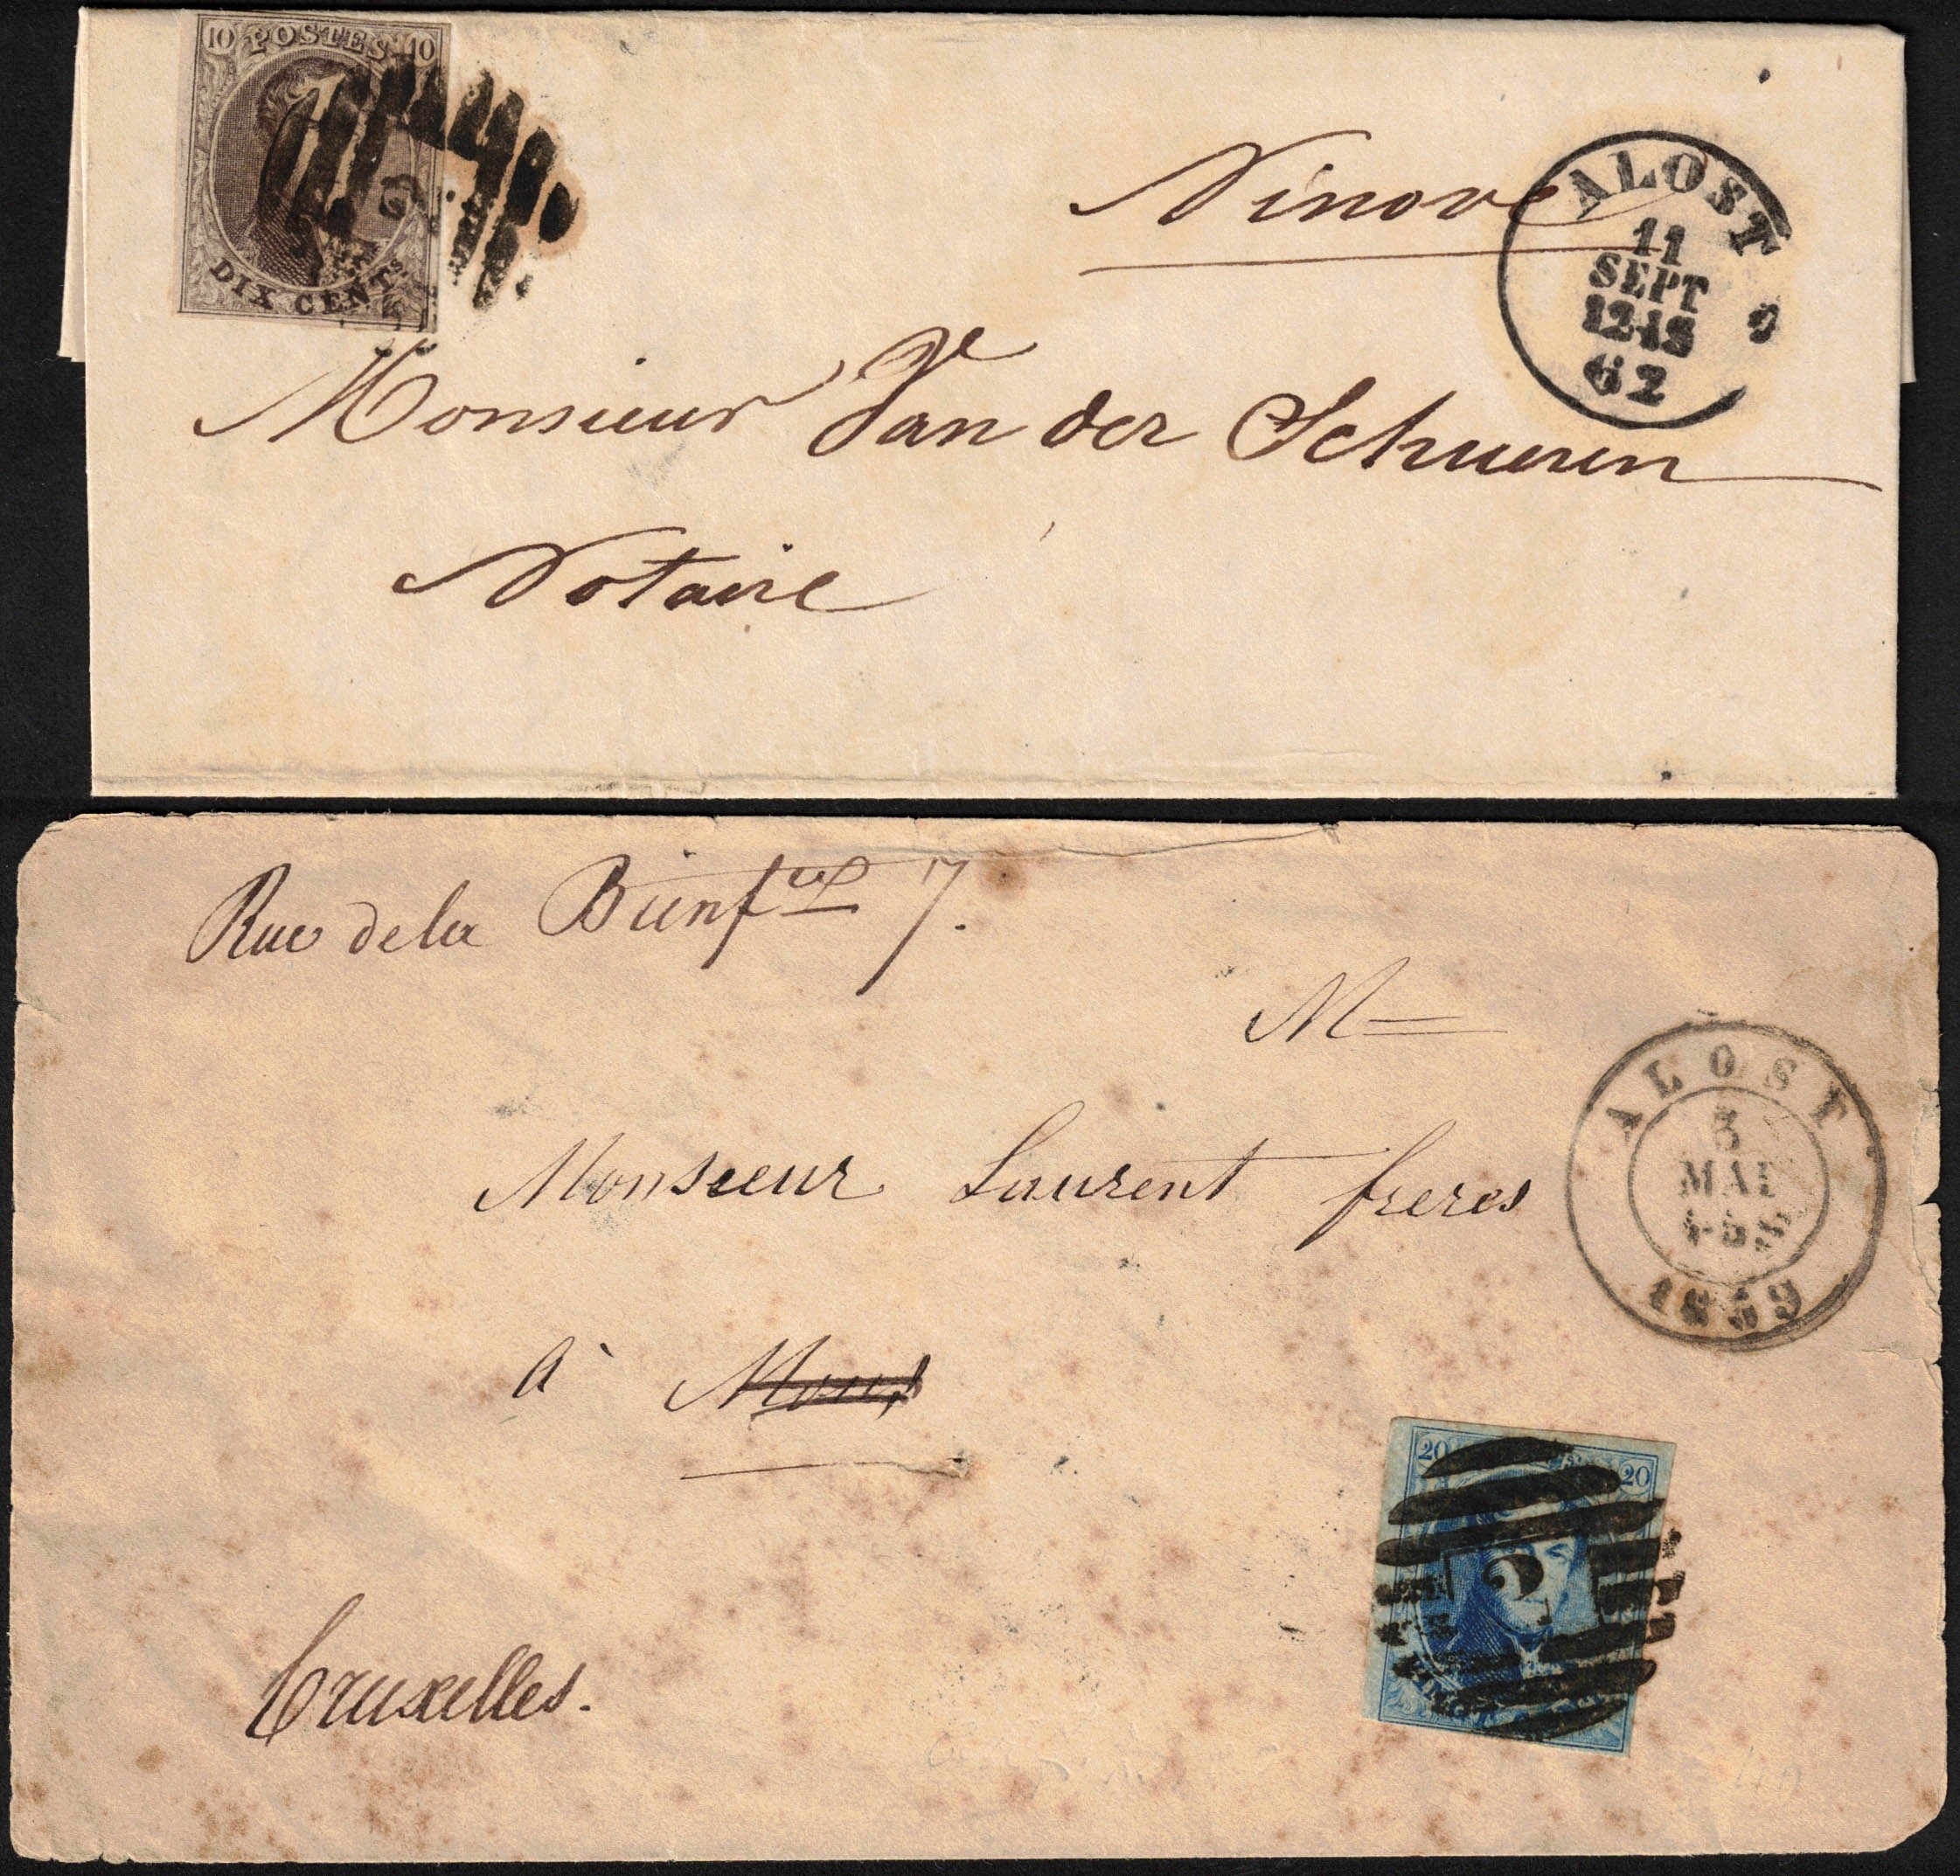 10 POSTES 10
DIX CENTS
Ninove
ALOST
11
SEPT
12-1S
62
Monsieur Van der Schueren
Notaire
Rue de la Bienfce 7.
M
ALOST
MAI
4-5S
1859
Monsieur Laurent freres
à Mons
20 20
VINGT
2
Bruxelles.